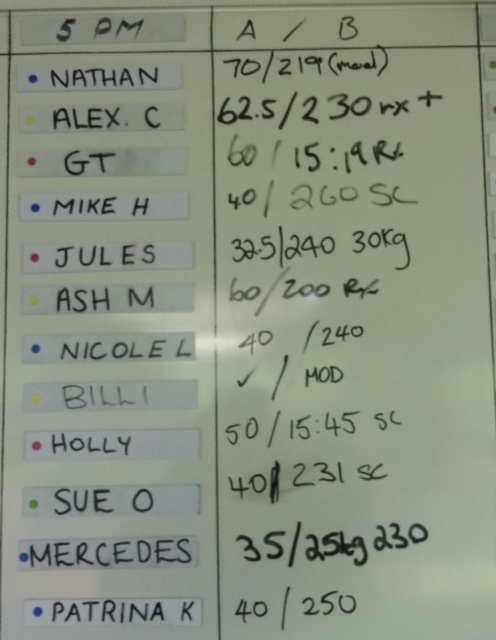 5 PM A / B
NATHAN 70/219 (mod)
ALEX. C 62.5/230 rx +
GT 60 / 15:19 Rx
MIKE H 40/ 260 SC
JULES 32.5/240 30kg
ASH M 60/200 Rx
NICOLE L 40 /240
BILLI ✓ / MOD
HOLLY 50/15:45 SC
SUE O 40/ 231 SC
MERCEDES 35/25kg 230
PATRINA K 40 / 250